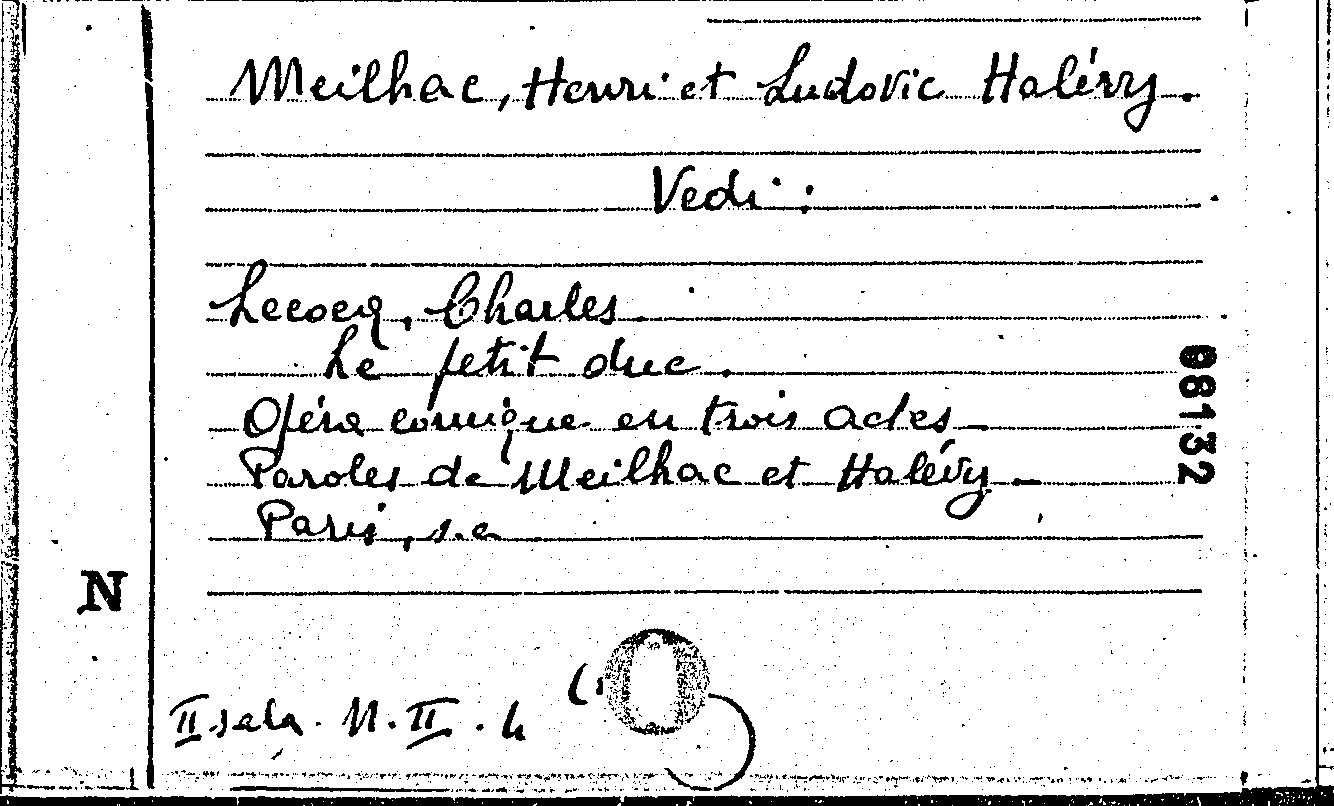 Meilhac, Henri et Ludovic Halévy.
Vedi:
Lecocq, Charles.
Le petit duc.
Opéra comique en trois actes_
Paroles de Meilhac et Halévy_
Paris, s.a
08132
N
II sala. N. II. 4